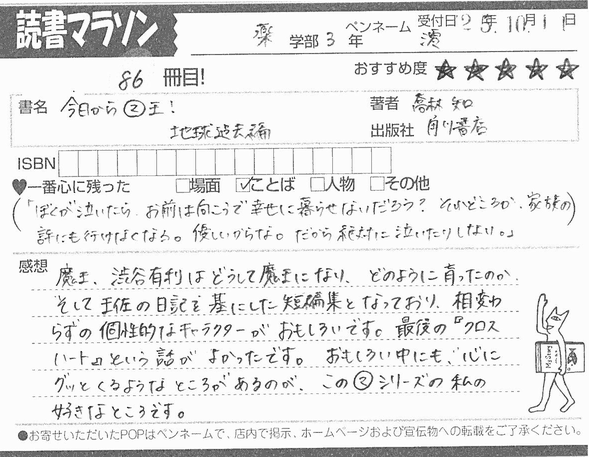 読書マラソン
薬 学部 3 年 ペンネーム 濱 受付日 25年 10月 11日
86 冊目!
おすすめ度 ★★★★★
書名 今日から㋮王!
地球過去編
著者 喬林 知
出版社 角川書店
ISBN
♥一番心に残った □場面 ☑ことば □人物 □その他
(「ぼくが泣いたら、お前は向こうで幸せに暮らせないだろう? それどころか、家族の
許にも行けなくなる。優しいからな。だから絶対に泣いたりしない。」)
感想
魔王、渋谷有利はどうして魔王になり、どのように育ったのか、
そして王佐の日記を基にした短編集となっており、相変わ
らずの個性的なキャラクターがおもしろいです。最後の『クロス
ハート』という話がよかったです。おもしろい中にも、心に
グッとくるようなところがあるのが、この㋮シリーズの私の
好きなところです。
●お寄せいただいたPOPはペンネームで、店内で掲示、ホームページおよび宣伝物への転載をご了承ください。